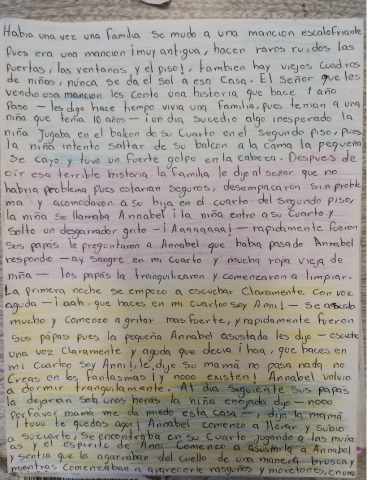 Habia una vez una familia se mudo a una mancion escalofriante
Pues era una mancion ¡muy antigua, hacen raros ruidos las
puertas, las ventanas y el piso!, tambien hay viejos cuadros
de niños, nunca se da el sol a esa Casa. El señor que les
vendio esa mancion les conto una historia que hace 1 año
Paso — les dijo hace tiempo vivia una familia, pues tenian a una
niña que tenia 10 años — ¡un dia sucedio algo inesperado la
niña Jugaba en el balcon de su Cuarto en el Segundo piso, pues
la niña intento saltar de su balcon a la cama la pequeña
Se cayo y tuvo un fuerte golpe en la cabeza. Despues de
oir esa terrible historia la familia le dijo al señor que no
habria problema pues estarian seguros, desempacaron sin proble
ma y acomodaron a su hija en el cuarto del segundo piso,
la niña se llamaba Annabel ¡la niña entro a su Cuarto y
Solto un desgarrador grito — ¡Aaaaaaaa! — rapidamente fueron
Sus papás le preguntaron a Annabel que habia pasado Annabel
respondio — ay sangre en mi Cuarto y mucha ropa vieja de
niña — los papás la tranquilizaron y comenzaron a limpiar.
La primera noche se empezo a escuchar Claramente Con voz
aguda — ¡aah, que haces en mi cuarto soy Anni! — Se asusto
mucho y Comenzo a gritar mas fuerte, y rapidamente fueron
Sus pápas pues la pequeña Annabel asustada les dijo — escuche
una voz Claramente y aguda que decia ¡haa, que haces en
mi Cuarto Soy Anni!, le dijo Su mamá no pasa nada no
Creas en los Fantasmas! y nooo existen! Annabel volvio
a dormir tranquilamente. Al dia Siguiente sus papas
la dejaran Sola unas horas la niña enojada dijo — nooo
Por favor mamá me da miedo esta casa —, dijo la mamá
¡tuuu te quedas aqui! Annabel comenzo a llorar y subio
a su cuarto, se encontraba en su Cuarto jugando a las muñe
as y el espiritu de Anni Comenzo a asustarla a Annabel
y sentia que la agarraban del Cuello de una manera brusca y
mientras Comenzaban a aparecerle rasguños y moretones, en uno